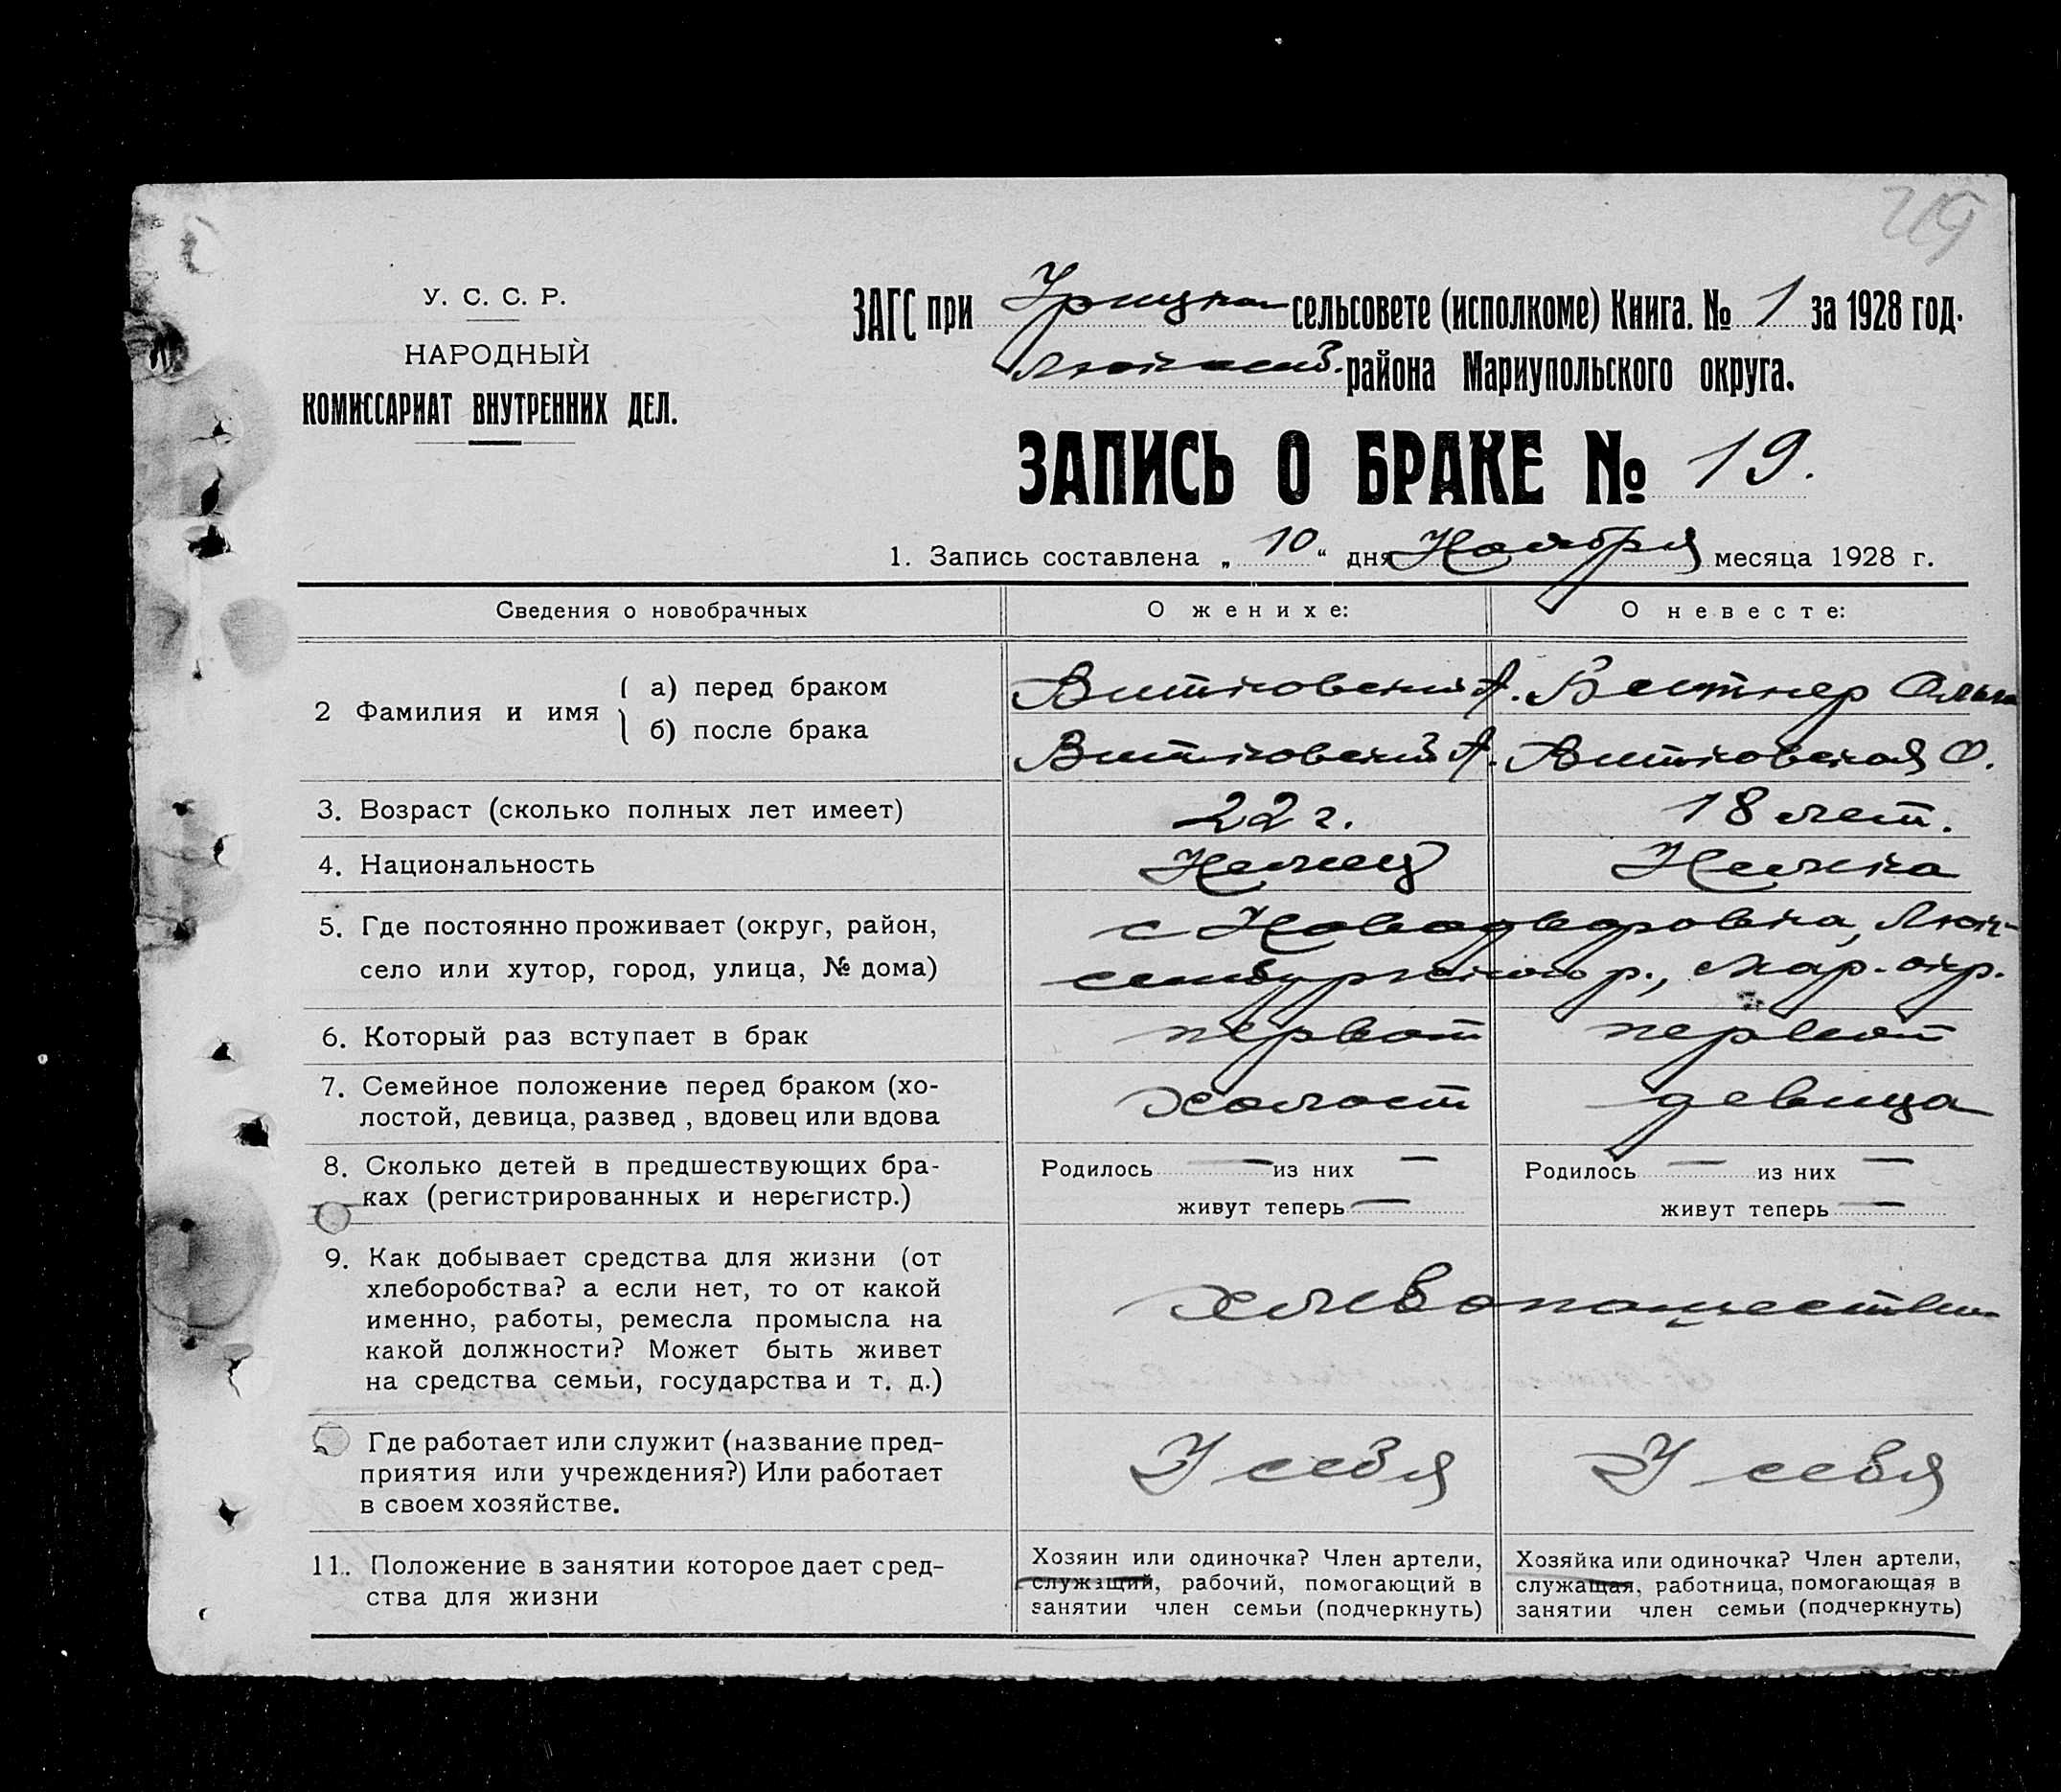 У. С. С. Р.
НАРОДНЫЙ
КОМИССАРИАТ ВНУТРЕННИХ ДЕЛ.
ЗАГС при Урицком сельсовете (исполкоме) Книга. № 1 за 1928 год.
района Мариупольского округа.
ЗАПИСЬ О БРАКЕ № 19.
1. Запись составлена „ 10 “ дня Ноября месяца 1928 г.
Сведения о новобрачных О женихе: О невесте:
2 Фамилия и имя
а) перед браком Витковский А. Вестнер Ольга
б) после брака Витковский А. Витковская О.
3. Возраст (сколько полных лет имеет) 22 г. 18 лет.
4. Национальность Немец Немка
5. Где постоянно проживает (округ, район, с Новодворовка, Люк-
село или хутор, город, улица, № дома) сембургского р., Мар. окр.
6. Который раз вступает в брак первый первый
7. Семейное положение перед браком (хо-
лостой, девица, развед , вдовец или вдова холост девица
8. Сколько детей в предшествующих бра-
ках (регистрированных и нерегистр.)
Родилось — из них —
живут теперь —
Родилось — из них —
живут теперь —
9. Как добывает средства для жизни (от
хлеборобства? а если нет, то от какой
именно, работы, ремесла промысла на
какой должности? Может быть живет
на средства семьи, государства и т. д.)
хлебопашество
Где работает или служит (название пред-
приятия или учреждения?) Или работает
в своем хозяйстве.
У себя У себя
11. Положение в занятии которое дает сред-
ства для жизни
Хозяин или одиночка? Член артели,
служащий, рабочий, помогающий в
занятии член семьи (подчеркнуть)
Хозяйка или одиночка? Член артели,
служащая, работница, помогающая в
занятии член семьи (подчеркнуть)